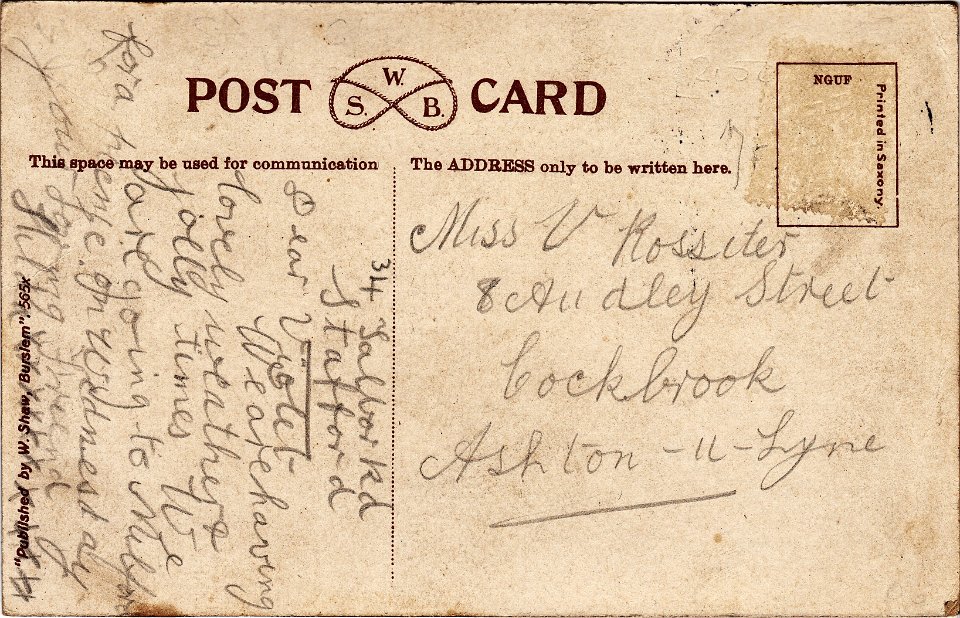 POST CARD
W.
S. B.
NGUF
Printed in Saxony.
This space may be used for communication
The ADDRESS only to be written here.
34
Stafford
Dear Violet
We are having
lovely weather &
jolly times We
are going to Milfor
for a
on Wednesday
your loving friend
xxxx
"Published by W. Shaw, Burslem". 565x
Miss V Rossiter
8 Audley Street
Cockbrook
Ashton-u-Lyne